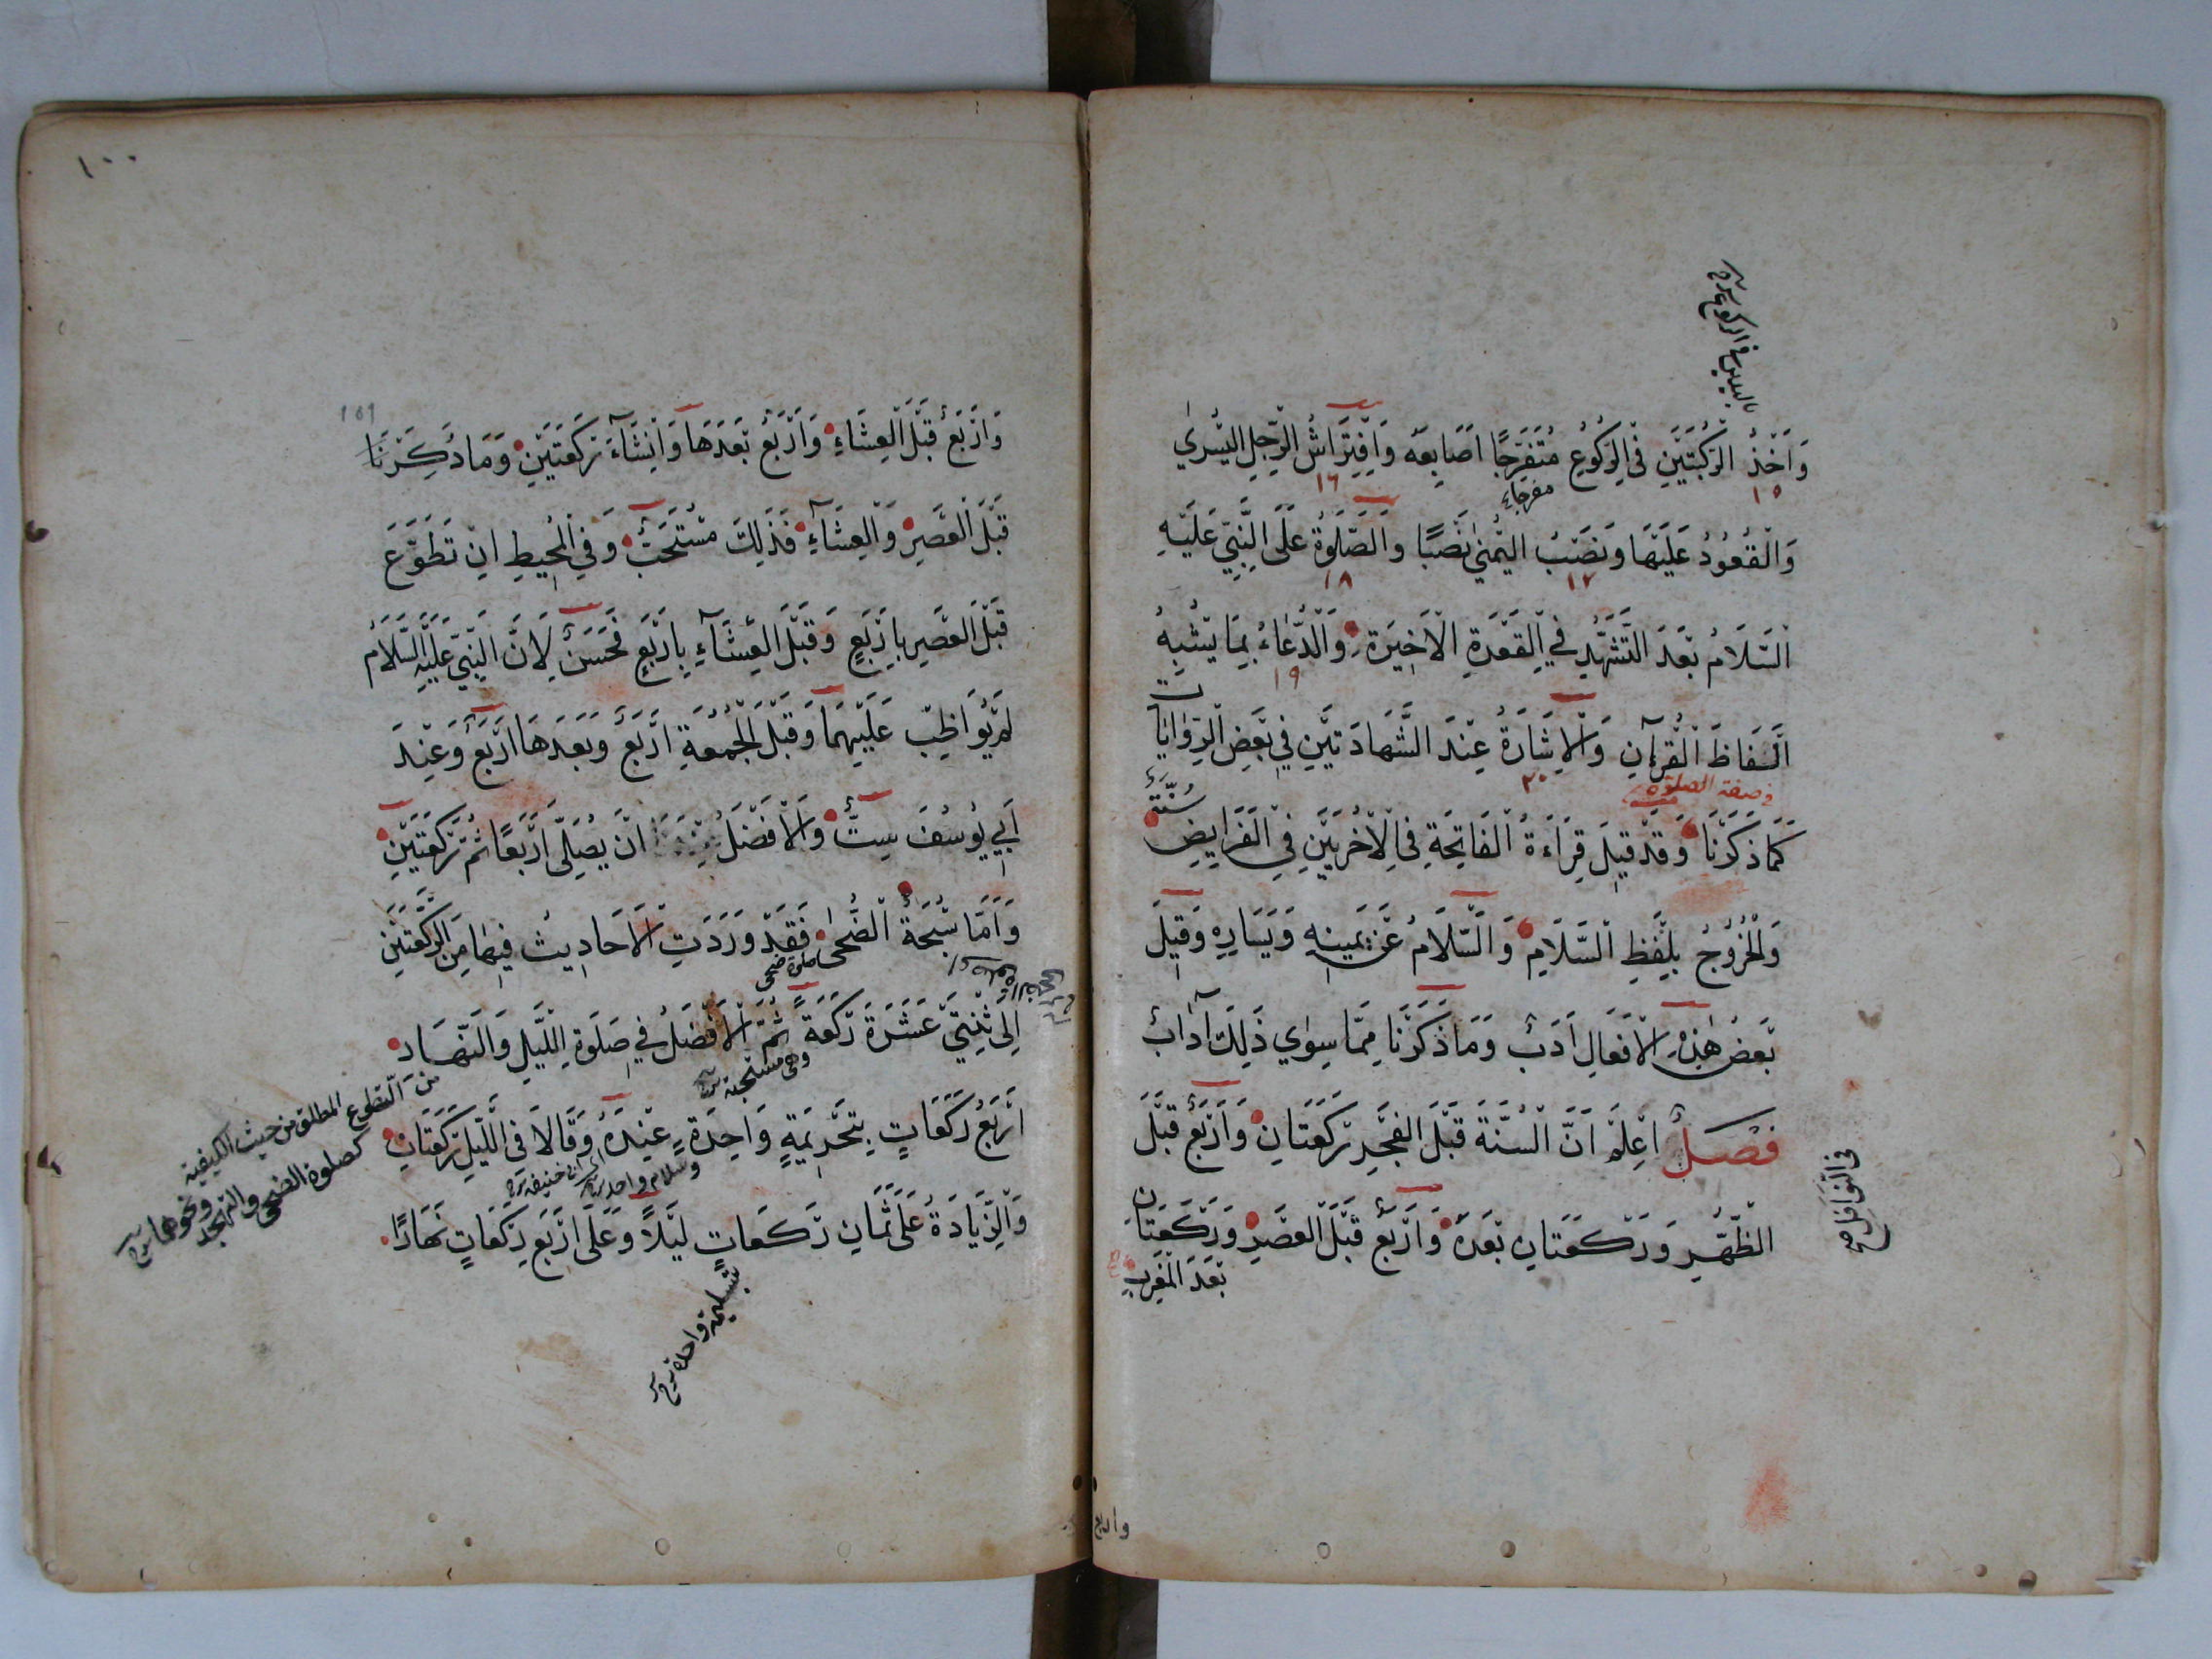 باليدين في الركوع
وَاَخْذُ الرُّكْبَتَيْنِ فِي الرُّكُوعِ مُتَفَرِّجًا اَصَابِعَه وَاِفْتِرَاشُ الرِّجْلِ اليُسْرٰي
١٥ مفرجا ١٦
وَالْقُعُودُ عَلَيْهَا وَنَصْبُ اليُمْنٰي نَصْبًا وَالصَّلٰوةُ عَلَى النَّبِيِّ عَلَيْهِ
١٧ ١٨
السَّلَامُ بَعْدَ التَّشَهُّدِ فِي الْقَعْدَةِ الْاَخِيرَةِ وَالدُّعَاءُ بِمَا يُشْبِهُ
١٩
اَلْفَاظَ الْقُرْآنِ وَالْاِشَارَةُ عِنْدَ الشَّهَادَتَيْنِ فِي بَعْضِ الرِّوَايَاتِ
في صفة الصلوة ٢٠
كَمَا ذَكَرْنَا وَقَدْ قِيلَ قِرَاءَةُ الْفَاتِحَةِ فِي الْاُخْرَيَيْنِ فِي الْفَرَايِضِ سُنَّةٌ
وَالْخُرُوجُ بِلَفْظِ السَّلَامِ وَالسَّلَامُ عَنْ يَمِينِهِ وَيَسَارِهِ وَقِيلَ
بَعْضُ هٰذِهِ الْاَفْعَالِ اَدَبٌ وَمَا ذَكَرْنَا مِمَّا سِوٰي ذٰلِكَ آدَابٌ
فَصْلٌ اِعْلَمْ اَنَّ السُّنَّةَ قَبْلَ الفَجْرِ رَكْعَتَانِ وَاَرْبَعٌ قَبْلَ
في النَّوَافِل صح
الظُّهْرِ وَرَكْعَتَانِ بَعْدَهُ وَاَرْبَعٌ قَبْلَ العَصْرِ وَرَكْعَتَانِ
بَعْدَ الْمَغْرِبِ
واربع
١٠٠
وَاَرْبَعٌ قَبْلَ الْعِشَاءِ وَاَرْبَعٌ بَعْدَهَا وَاِنْ شَآءَ رَكْعَتَيْنِ وَمَا ذَكَرْنَا
قَبْلَ الْعَصْرِ وَالْعِشَآءِ فَذٰلِكَ مُسْتَحَبٌّ وَفِي الْمُحِيطِ اِنْ تَطَوَّعَ
قَبْلَ الْعَصْرِ بِاَرْبَعٍ وَقَبْلَ الْعِشَآءِ بِاَرْبَعٍ فَحَسَنٌ لِاَنَّ النَّبِيَّ عَلَيْهِ السَّلَامُ
لَمْ يُوَاظِبْ عَلَيْهِمَا وَقَبْلَ الْجُمُعَةِ اَرْبَعٌ وَبَعْدَهَا اَرْبَعٌ وَعِنْدَ
اَبِي يُوسُفَ سِتٌّ وَالْاَفْضَلُ اَنْ يُصَلِّيَ اَرْبَعًا ثُمَّ رَكْعَتَيْنِ
وَاَمَّا سُبْحَةُ الضُّحٰى فَقَدْ وَرَدَتِ الْاَحَادِيثُ فِيهَا مِنَ الرَّكْعَتَيْنِ
صلوة ضحى
اِلٰى ثِنْتَيْ عَشَرَةَ رَكْعَةً ثُمَّ الْاَفْضَلُ فِي صَلٰوةِ اللَّيْلِ وَالنَّهَارِ
وهي مستحبة
اَرْبَعُ رَكَعَاتٍ بِتَحْرِيمَةٍ وَاحِدَةٍ عِنْدَهُ وَقَالَا فِي اللَّيْلِ رَكْعَتَانِ
وسلام واحد
وَالزِّيَادَةُ عَلَى ثَمَانِ رَكَعَاتٍ لَيْلًا وَعَلَى اَرْبَعِ رَكَعَاتٍ نَهَارًا
بتسليمة واحدة
من التطوع المطلق من حيث الكيفية
كصلوة الضحى والتهجد ونحوهما